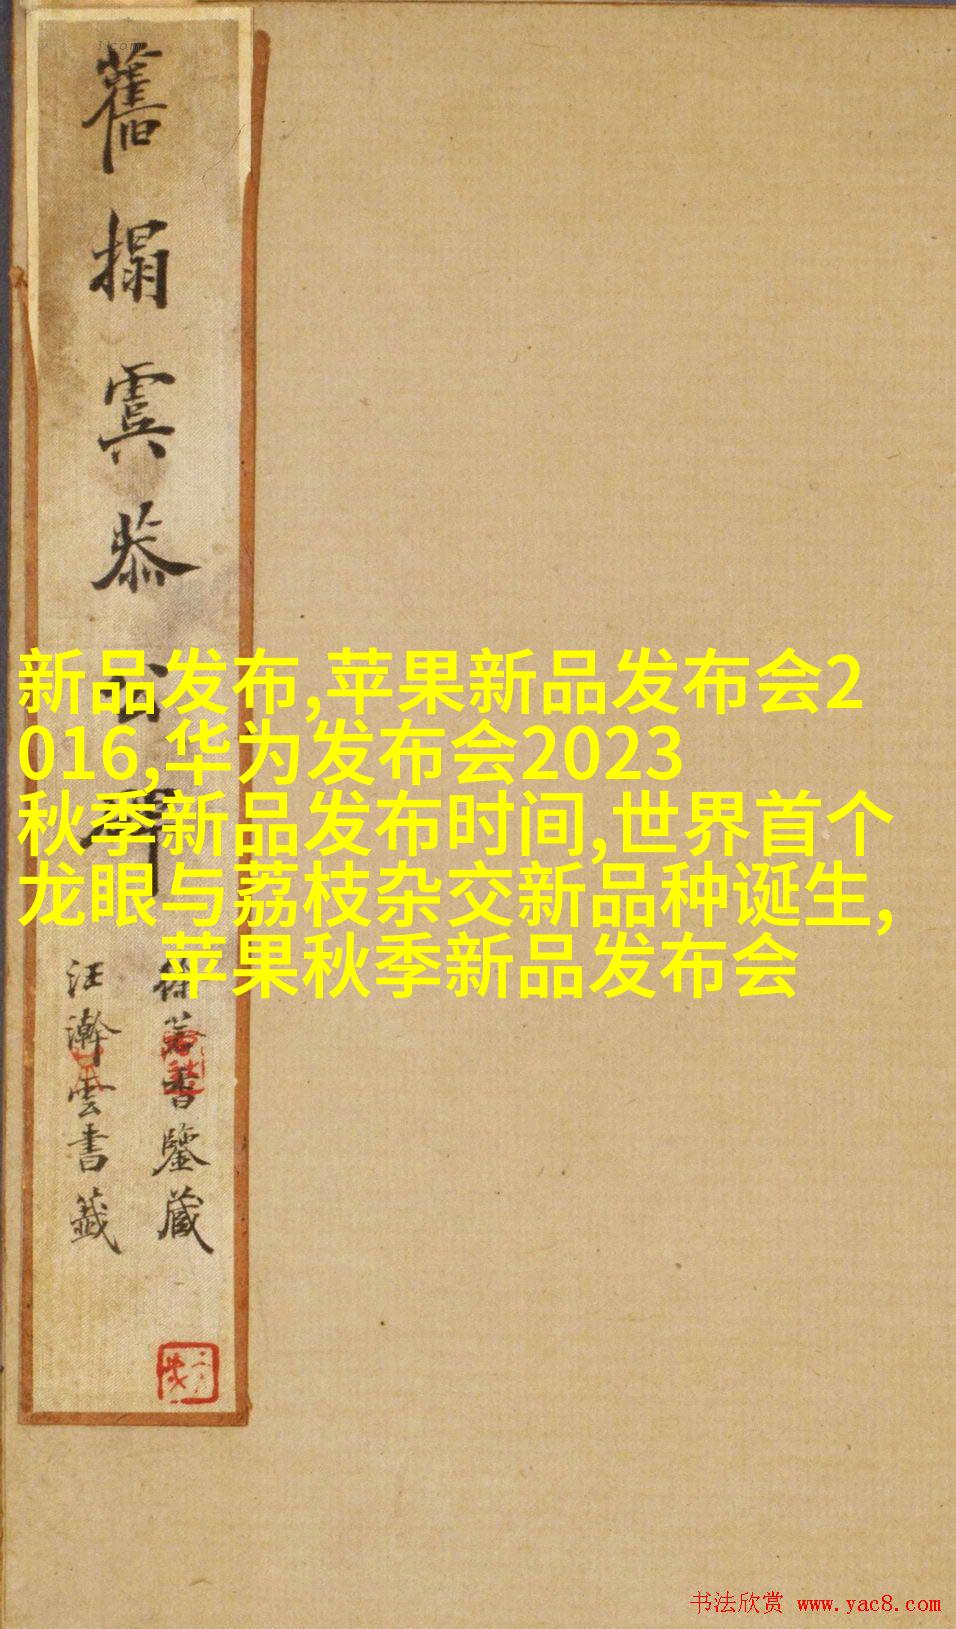 舊搨虞恭公碑
徐若書鑒藏
汪瀚雲書籤
新品发布,苹果新品发布会2
016,华为发布会2023
秋季新品发布时间,世界首个
龙眼与荔枝杂交新品种诞生,
苹果秋季新品发布会
书法欣赏 www.yac8.com